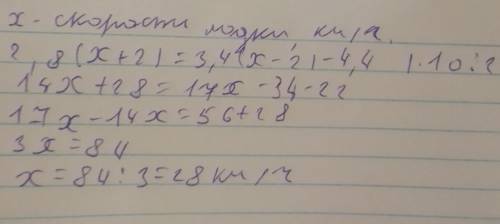 х - скорость лодки, км/ч.
2,8(х+2)=3,4(х-2)-4,4 |·10:2
14х+28=17х-34-22
17х-14х=56+28
3х=84
х=84:3=28км/ч